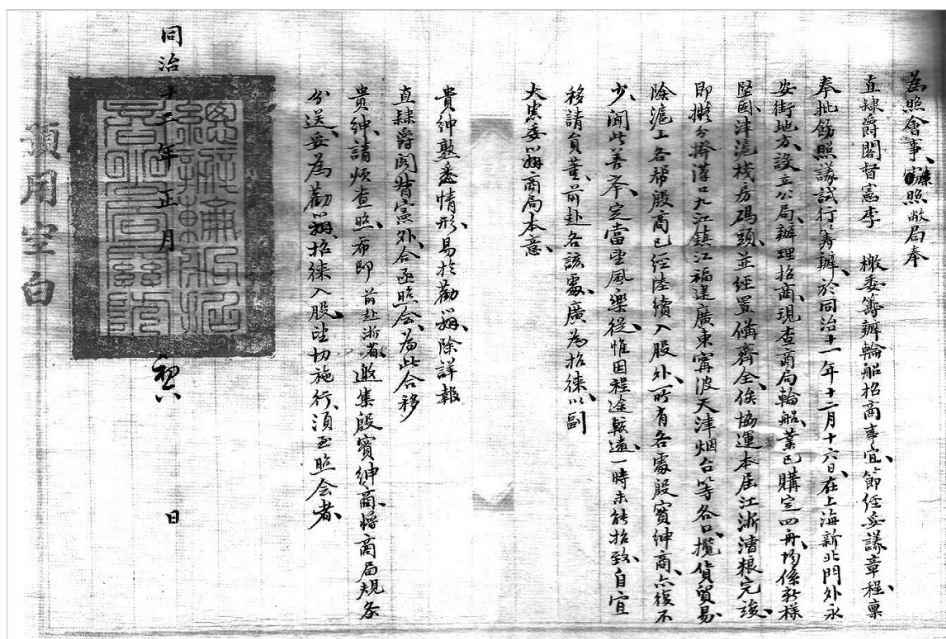 為照會事、案照敝局奉
直隸爵閣督憲李　檄委籌辦輪船招商事宜、節經妥議章程、稟
奉批飭照議試行籌辦、於同治十一年十二月十六日、在上海新北門外永
安街地方、設立公局、辦理招商、現查商局輪船、業已購定四舟、均係新樣
堅固、津滬棧房碼頭、並經置備齊全、俟協運本屆江浙漕糧完竣、
即擬分攬漢口九江鎮江福建廣東寧波天津烟台等各口、攬貨貿易、
除滬上各幫殷商、已經陸續入股外、所有各處殷實紳商、亦復不
少、聞此善舉、定當聞風樂從、惟因程途較遠、一時未能招致、自宜
移請貟董、前赴各該處、廣為招徠、以副
大憲委辦商局本意、
貴紳熟悉情形、易於勸辦、除詳報
直隸爵閣督憲外、合函照會、為此合移
貴紳、請煩查照、布即　前赴浙省、邀集殷實紳商、將商局規條
分送、妥為勸辦、招徠入股、望切施行、須至照會者、
同治十二年正月　日
總辦輪船招
預用空白